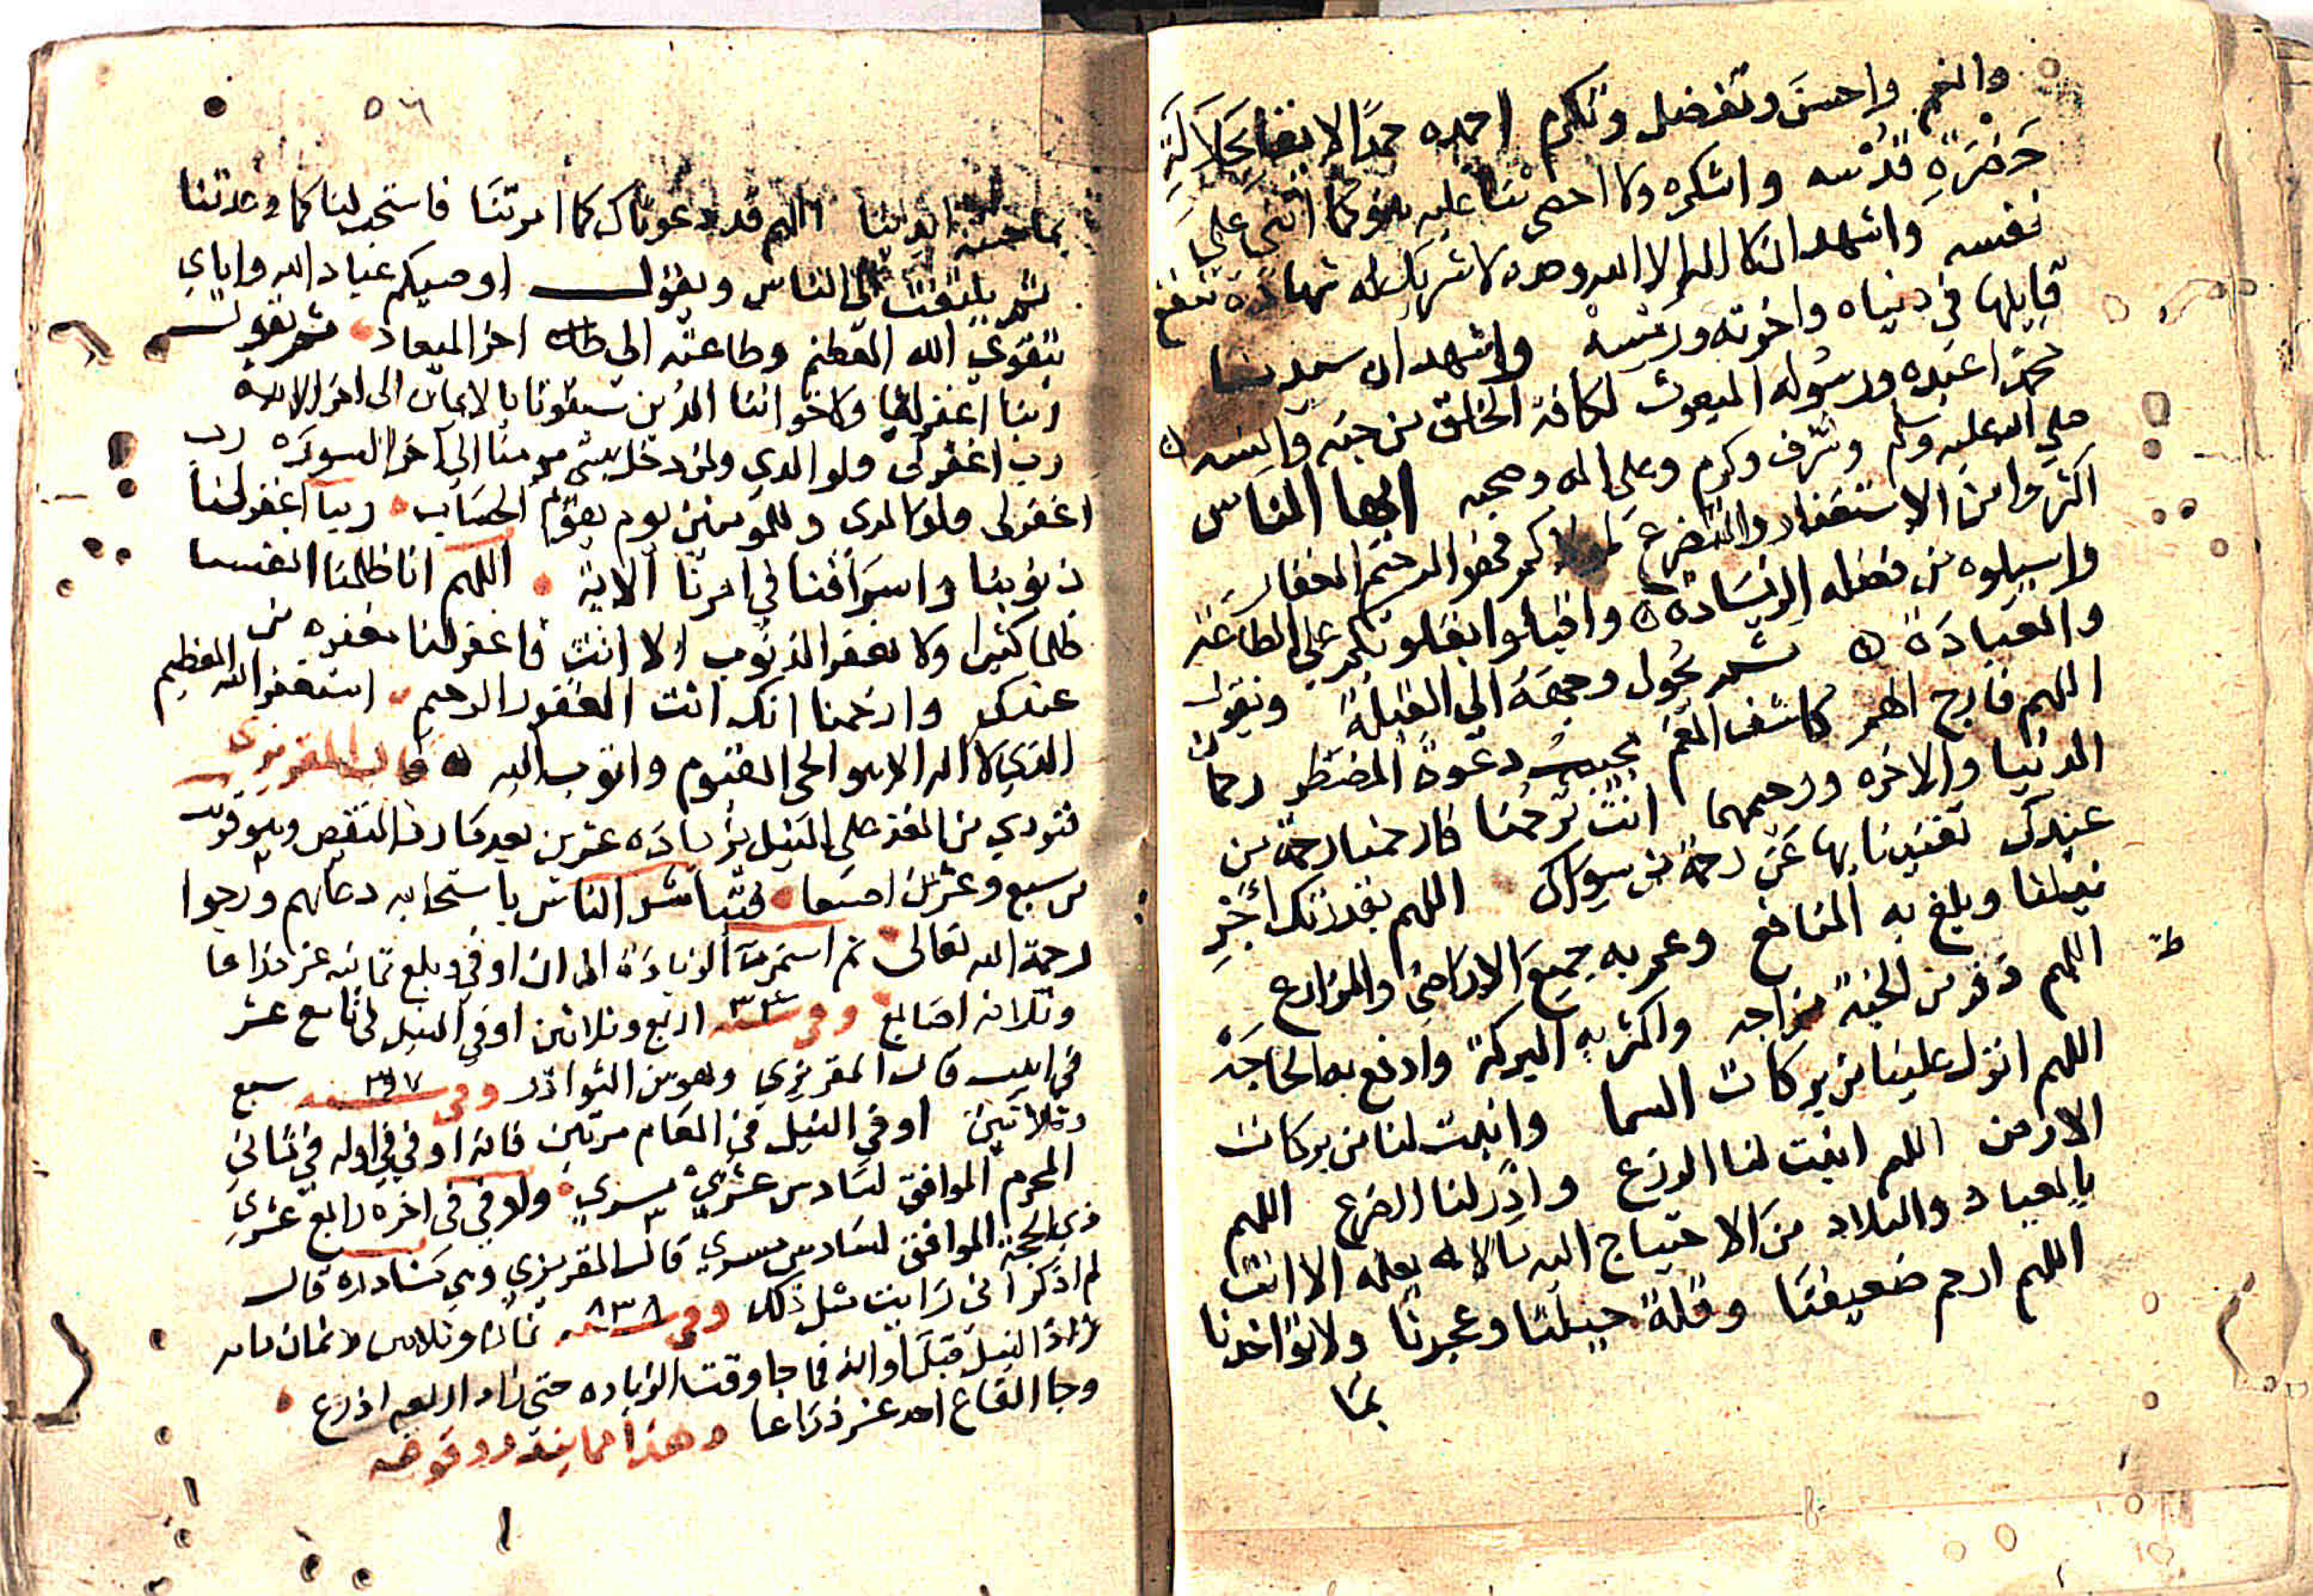 وانعم واحسن وتفضل وتكرم احمده حمدا لا يفا بجلالة
حضرة قدسه واشكره ولا احصي ثنا عليه هو كما اثنى على
نفسه واشهد ان لا اله الا الله وحده لا شريك له شهادة تنفع
قايلها في دنياه واخرته ورمسه واشهد ان سيدنا
محمدا عبده ورسوله المبعوث لكافة الخلق من جنه وانسه
صلى الله عليه وسلم وشرف وكرم وعلى اله وصحبه ايها الناس
اكثروا من الاستغفار والتضرع فهو الرحيم الغفار
واسيلوه من فضله الزيادة واقبلوا بقلوبكم على الطاعة
والعبادة ثم يحول وجهه الى القبلة ويقول
اللهم فارج الهم كاشف الغم مجيب دعوة المضطر رحمان
الدنيا والاخره ورحيمهما انت ترحمنا فارحمنا رحمة من
عندك تغنينا بها عن رحمة من سواك اللهم بقدرتك أجر
نيلنا وبلغ به المنافع وعمر به جميع الاراضي والمزارع
اللهم من الجنة مزاجه واكثر به البركة وادفع به الحاجة
ط
اللهم انزل علينا من بركات السما وانبت لنا من بركات
الارض اللهم انبت لنا الزرع وادر لنا الضرع اللهم
بالعباد والبلاد من الاحتياج اليه ما لا يعلمه الا انت
اللهم ارحم ضعيفنا وقلة حيلتنا وعجزنا ولا تواخذنا
بما
٥٦
بما اللهم قد دعوناك كما امرتنا فاستجب لنا كما وعدتنا
ثم يلتفت الى الناس ويقول اوصيكم عباد الله واياي
بتقوى الله العظيم وطاعته الى اخر الميعاد ثم يقول
ربنا اغفر لنا ولاخواننا الذين سبقونا بالايمان الى اخر الايه
رب اغفر لي ولوالدي ولمن دخل بيتي مومنا الى اخر السوره رب
اغفر لي ولوالدي وللمومنين يوم يقوم الحساب ربنا اغفر لنا
ذنوبنا واسرافنا في امرنا الاية اللهم انا ظلمنا انفسنا
ظلما كثيرا ولا يغفر الذنوب الا انت فاغفر لنا مغفره من
عندك وارحمنا انك انت الغفور الرحيم استغفر الله العظيم
الذي لا اله الا هو الحي القيوم واتوب اليه قال المقريزي
فنودي من الغد على النيل بزيادة عشرين بعد النقص وهو قريب
من سبع وعشرين اصبعا فتباشر الناس باستجابه دعايهم ورجوا
رحمة الله تعالى ثم استمرت الزيادة الى ان اوفى وبلغ ثمانيه عشر ذراعا
وثلاثه اصابع وفي سنه ٣٤ اربع وثلاثين اوفي النيل في تاسع عشر
في ابيب قال المقريزي وهو من النوادر وفي سنه ٣٧ سبع
وثلاثين اوفي النيل في العام مرتين فانه اوفي في اوله في ثاني
المحرم الموافق لسادس عشري مسري واوفي في اخره رابع عشري
ذي الحجة الموافق لسادس مسري قال المقريزي وهي نادره قال
لم اذكر اني رايت مثل ذلك وفي سنه ٨٣٨ ثمان وثلاثين وثمان مايه
زاد النيل قبل اوانه فما جا وقت الزياده حتى زاد اربعه اذرع
وجا القاع احد عشر ذراعا وهذا مما يندر وقوعه